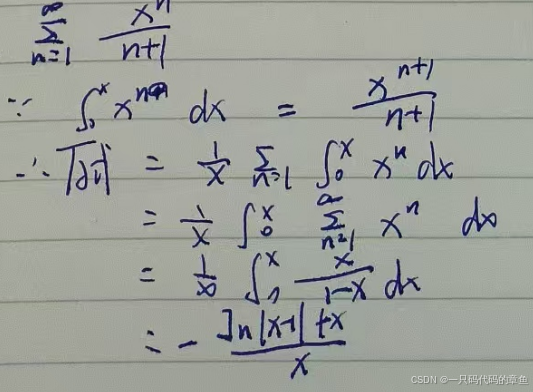 ∞
Σ x^n / (n+1)
n=1
∵ ∫_0^x x^n dx = x^{n+1} / (n+1)
∴ 原式 = 1/x Σ_{n=1} ∫_0^x x^n dx
= 1/x ∫_0^x Σ_{n=1}^∞ x^n dx
= 1/x ∫_0^x x/(1-x) dx
= - (ln|x-1| + x) / x
CSDN @一只码代码的章鱼